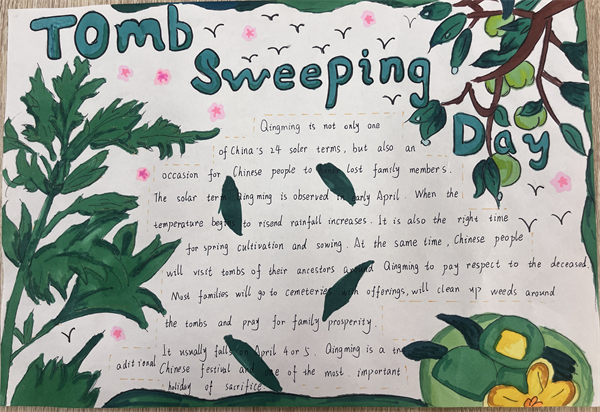 Tomb
Sweeping
Day
Qingming is not only one
of China's 24 soler terms, but also an
occasion for Chinese people to lost family members.
The solar Qingming is observed early April. When the
temperature begins to risend rainfall increases. It is also the right time
for spring cultivation and sowing. At the same time, Chinese people
will visit tombs of their ancestors around Qingming to pay respect to the deceased.
Most families will go to cemeteries with offerings, will clean up weeds around
the tombs and pray for family prosperity.
It usually falls on April 4 or 5. Qingming is a
aditional Chinese festival and one of the most important
holiday of sacrifice